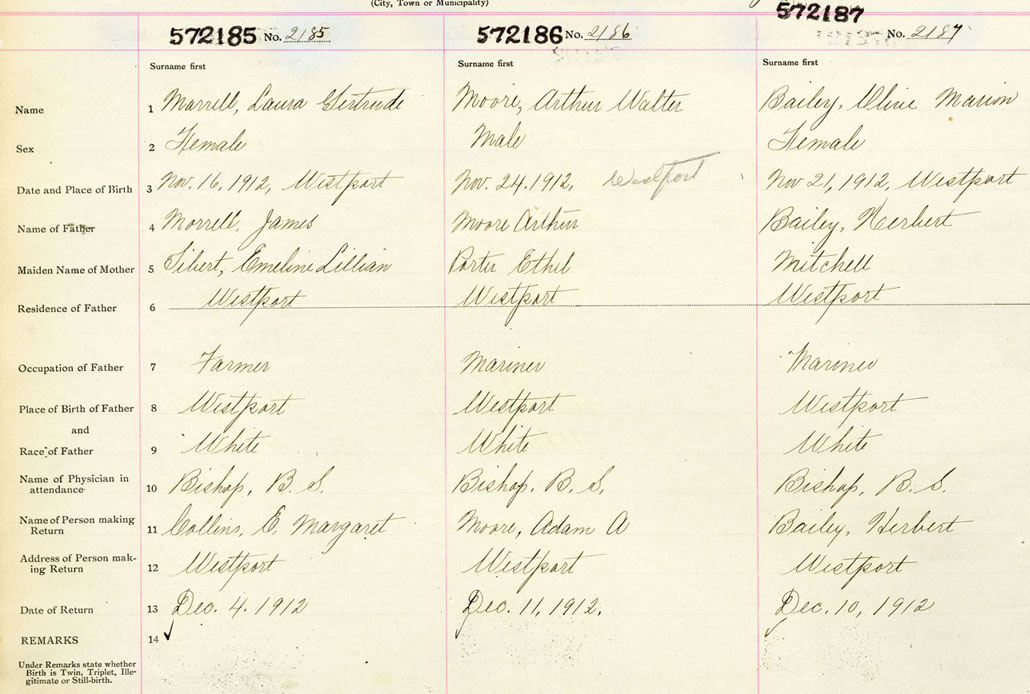 (City, Town or Municipality)
572185 No. 2185 572186 No. 2186 572187 No. 2187
Surname first Surname first Surname first
Name 1 Morrell, Laura Gertrude Moore, Arthur Walter Bailey, Olive Marion
Sex 2 Female Male Female
Date and Place of Birth 3 Nov. 16, 1912, Westport Nov. 24. 1912, Westport Nov 21, 1912, Westport
Name of Father 4 Morrell, James Moore Arthur Bailey, Herbert
Maiden Name of Mother 5 Emeline Lillian Porter Ethel Mitchell
Residence of Father 6 Westport Westport Westport
Occupation of Father 7 Farmer Mariner Mariner
Place of Birth of Father 8 Westport Westport Westport
and
Race of Father 9 White White White
Name of Physician in
attendance 10 Bishop, B. S. Bishop, B. S. Bishop, B. S.
Name of Person making
Return 11 Collins, E. Margaret Moore, Adam A Bailey, Herbert
Address of Person mak-
ing Return 12 Westport Westport Westport
Date of Return 13 Dec. 4. 1912 Dec. 11, 1912. Dec. 10, 1912
REMARKS 14
Under Remarks state whether
Birth is Twin, Triplet, Ille-
gitimate or Still-birth.